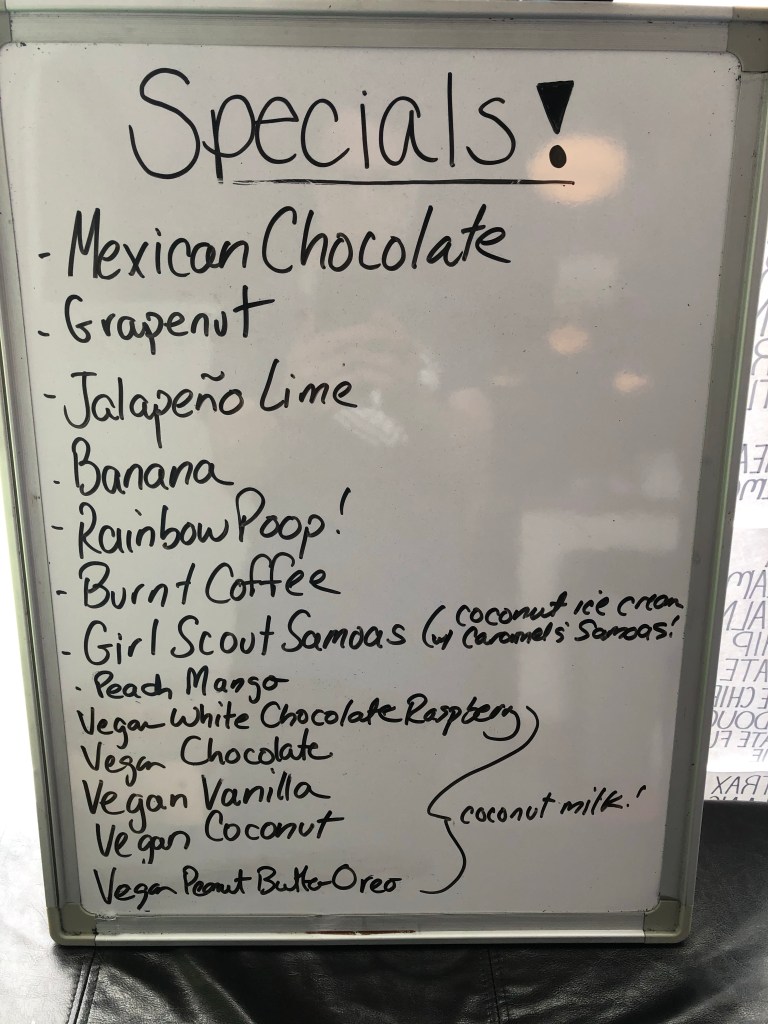 Specials!
- Mexican Chocolate
- Grapenut
- Jalapeño Lime
- Banana
- Rainbow Poop!
- Burnt Coffee
- Girl Scout Samoas (coconut ice cream
w/ Caramel & Samoas!
- Peach Mango
Vegan White Chocolate Raspberry
Vegan Chocolate
Vegan Vanilla
Vegan Coconut
coconut milk!
Vegan Peanut Butter Oreo